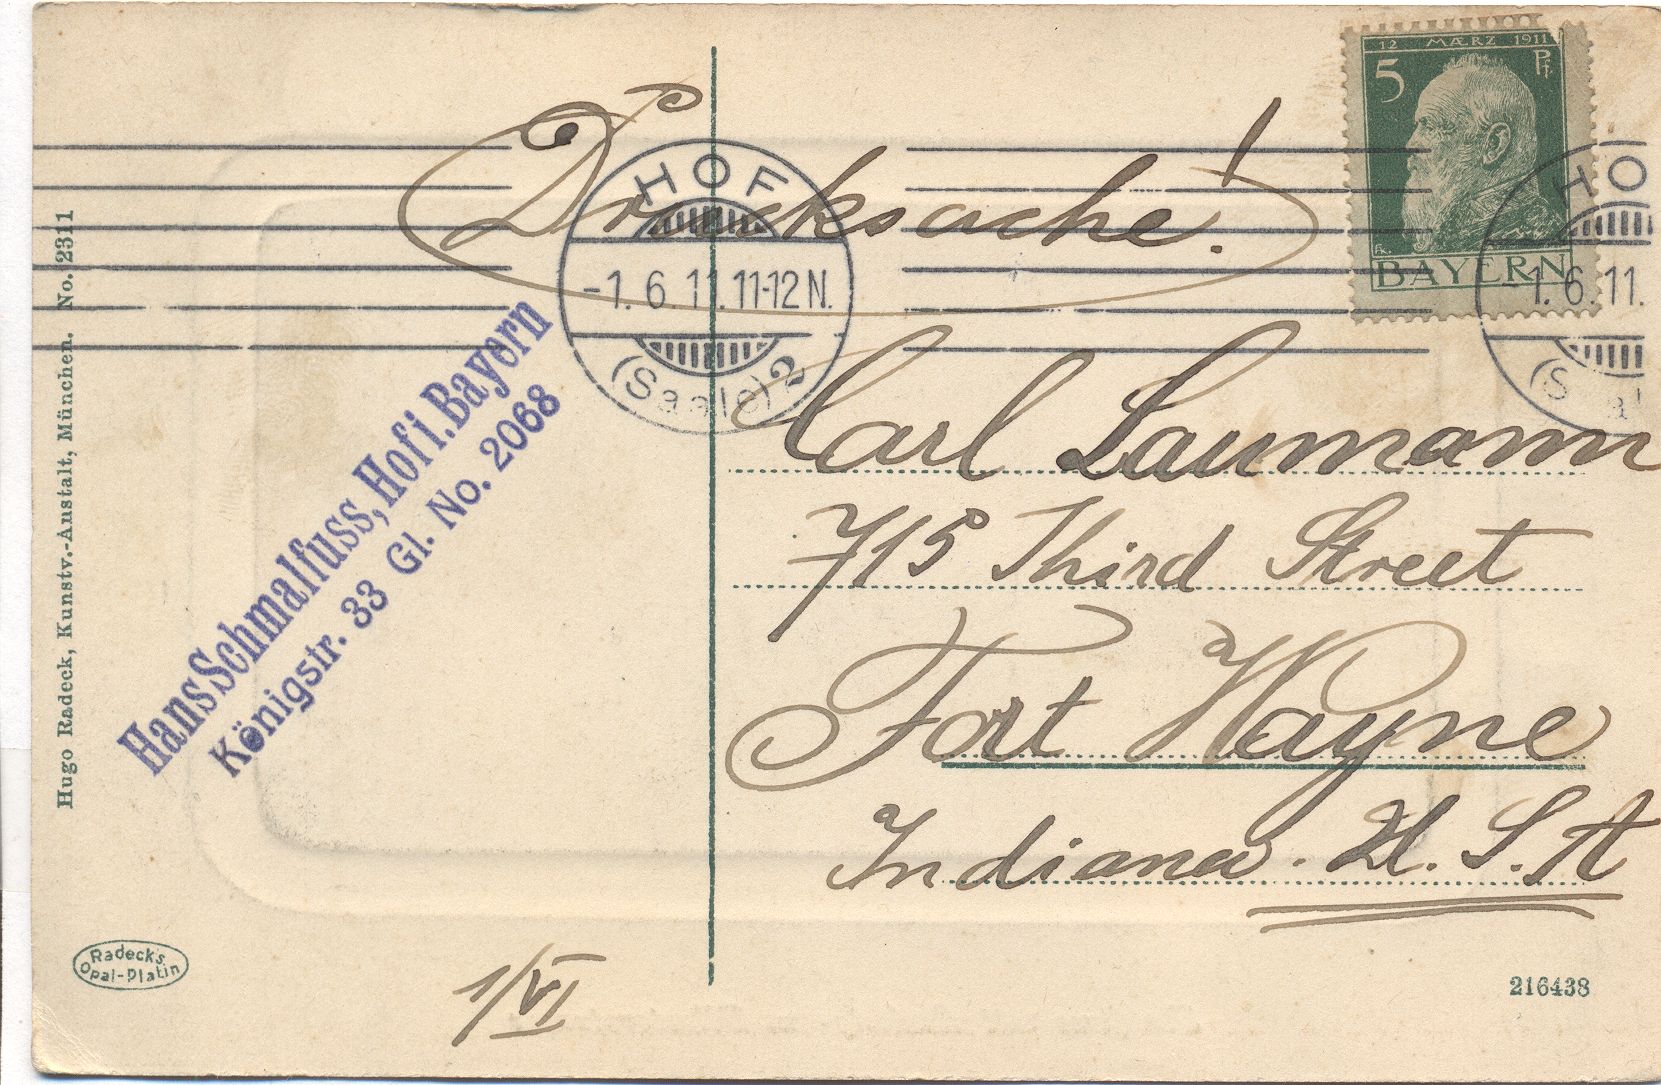 Drucksache!
12 MÆRZ 1911
5 Pf.
BAYERN
HOF
-1. 6. 11. 11-12 N.
(Saale) 2
HO
-1. 6. 11.
Hans Schmalfuss, Hof i. Bayern
Königstr. 33 Gl. No. 2068
Carl Laumann
715 Third Street
Fort Wayne
Indiana. U. S. A
Hugo Radeck, Kunstv.-Anstalt, München. No. 2311
Radeck's
Opal-Platin
1/VI
216438